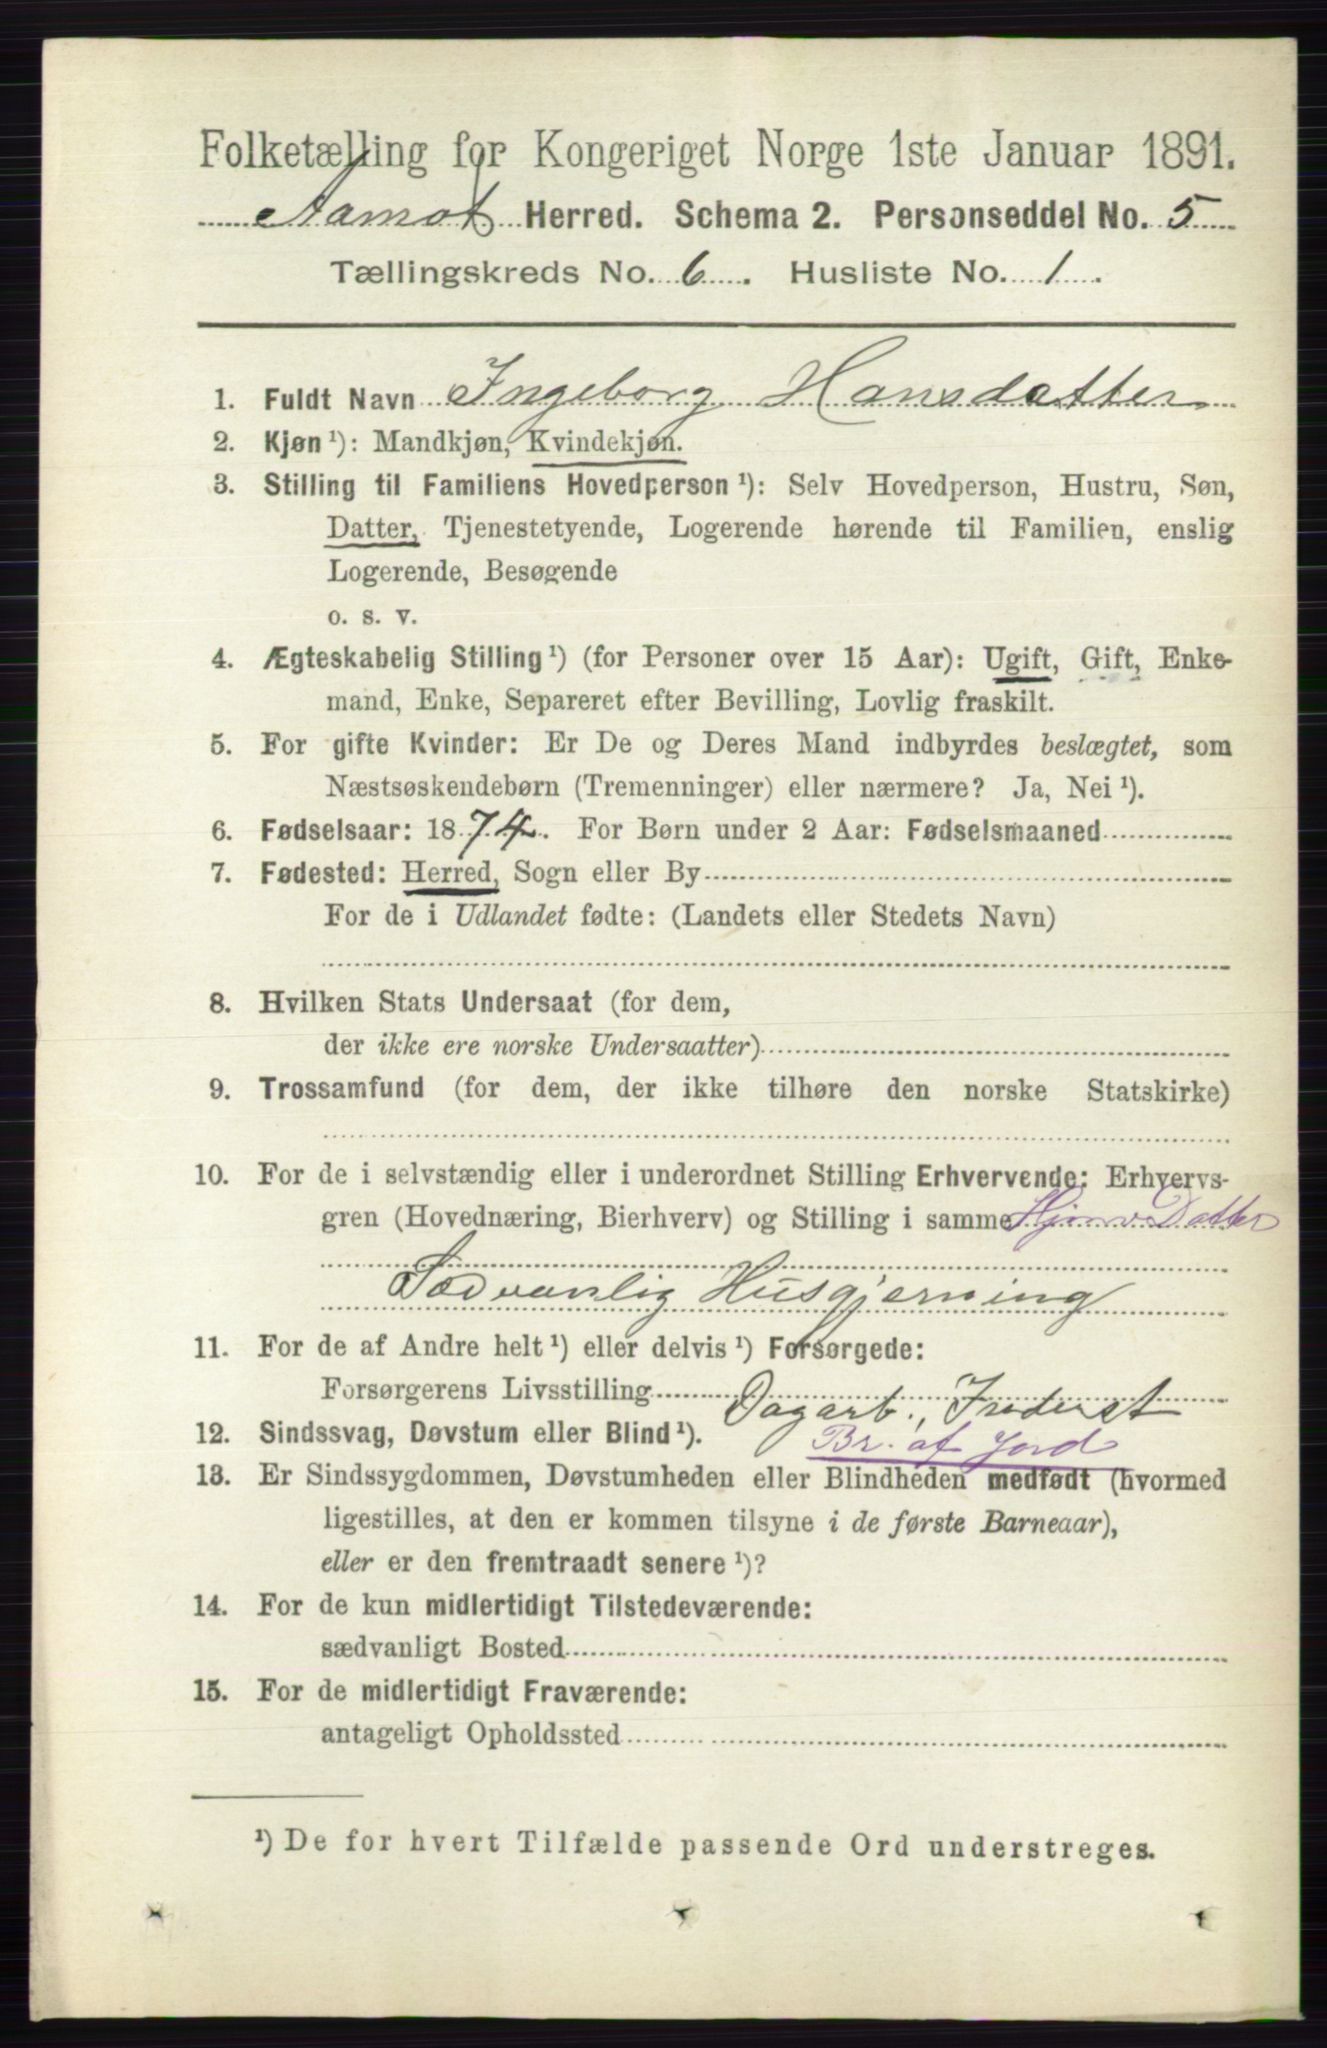 Folketælling for Kongeriget Norge 1ste Januar 1891.
Aamot Herred. Schema 2. Personseddel No. 5
Tællingskreds No. 6. Husliste No. 1.
1. Fuldt Navn Ingeborg Hansdatter
2. Kjøn ¹): Mandkjøn, Kvindekjøn.
3. Stilling til Familiens Hovedperson ¹): Selv Hovedperson, Hustru, Søn,
Datter, Tjenestetyende, Logerende hørende til Familien, enslig
Logerende, Besøgende
o. s. v.
4. Ægteskabelig Stilling ¹) (for Personer over 15 Aar): Ugift, Gift, Enke-
mand, Enke, Separeret efter Bevilling, Lovlig fraskilt.
5. For gifte Kvinder: Er De og Deres Mand indbyrdes beslægtet, som
Næstsøskendebørn (Tremenninger) eller nærmere? Ja, Nei ¹).
6. Fødselsaar: 1874. For Børn under 2 Aar: Fødselsmaaned
7. Fødested: Herred, Sogn eller By
For de i Udlandet fødte: (Landets eller Stedets Navn)
8. Hvilken Stats Undersaat (for dem,
der ikke ere norske Undersaatter)
9. Trossamfund (for dem, der ikke tilhøre den norske Statskirke)
10. For de i selvstændig eller i underordnet Stilling Erhvervende: Erhvervs-
gren (Hovednæring, Bierhverv) og Stilling i samme Hjemv Datter
Sædvanlig Husgjerning
11. For de af Andre helt ¹) eller delvis ¹) Forsørgede:
Forsørgerens Livsstilling Dagarb.,
12. Sindssvag, Døvstum eller Blind ¹). Br. af Jord
13. Er Sindssygdommen, Døvstumheden eller Blindheden medfødt (hvormed
ligestilles, at den er kommen tilsyne i de første Barneaar),
eller er den fremtraadt senere ¹)?
14. For de kun midlertidigt Tilstedeværende:
sædvanligt Bosted
15. For de midlertidigt Fraværende:
antageligt Opholdssted
¹) De for hvert Tilfælde passende Ord understreges.